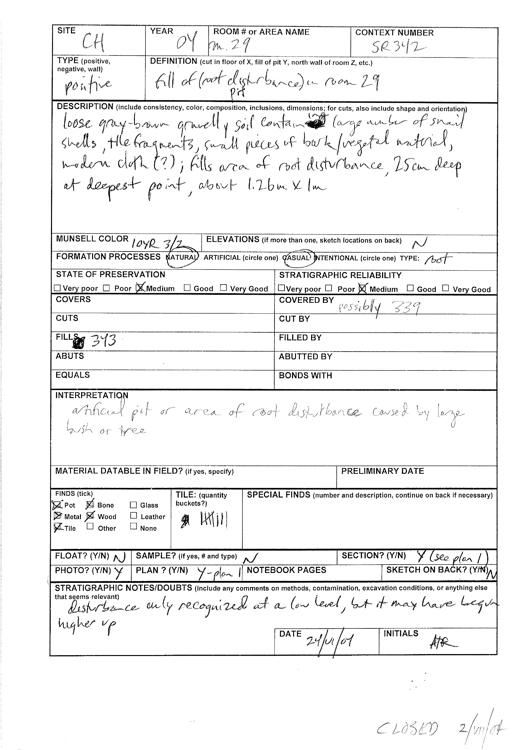 SITE CH YEAR 04 ROOM # or AREA NAME rm. 29 CONTEXT NUMBER SR342
TYPE (positive, negative, wall) positive DEFINITION (cut in floor of X, fill of pit Y, north wall of room Z, etc.) fill of (root disturbance) in room 29
pit
DESCRIPTION (include consistency, color, composition, inclusions, dimensions; for cuts, also include shape and orientation)
loose gray-brown gravelly soil contain large number of snail
shells, tile fragments, small pieces of bark/vegetal material,
modern cloth (?); fills area of root disturbance, 25cm deep
at deepest point, about 1.26m X 1m
MUNSELL COLOR 10YR 3/2 ELEVATIONS (if more than one, sketch locations on back) N
FORMATION PROCESSES NATURAL ARTIFICIAL (circle one) CASUAL INTENTIONAL (circle one) TYPE: root
STATE OF PRESERVATION STRATIGRAPHIC RELIABILITY
Very poor Poor Medium Good Very Good Very poor Poor Medium Good Very Good
COVERS COVERED BY possibly 339
CUTS CUT BY
FILLS 343 FILLED BY
ABUTS ABUTTED BY
EQUALS BONDS WITH
INTERPRETATION
artificial pit or area of root disturbance caused by large
bush or tree
MATERIAL DATABLE IN FIELD? (if yes, specify) PRELIMINARY DATE
FINDS (tick) TILE: (quantity SPECIAL FINDS (number and description, continue on back if necessary)
Pot Bone Glass buckets?)
Metal Wood Leather
Tile Other None
FLOAT? (Y/N) N SAMPLE? (if yes, # and type) N SECTION? (Y/N) Y (see plan 1)
PHOTO? (Y/N) Y PLAN ? (Y/N) Y-plan 1 NOTEBOOK PAGES SKETCH ON BACK? (Y/N) N
STRATIGRAPHIC NOTES/DOUBTS (include any comments on methods, contamination, excavation conditions, or anything else
that seems relevant)
disturbance only recognized at a low level, but it may have begun
higher up
DATE 24/VI/04 INITIALS
CLOSED 2/VII/04